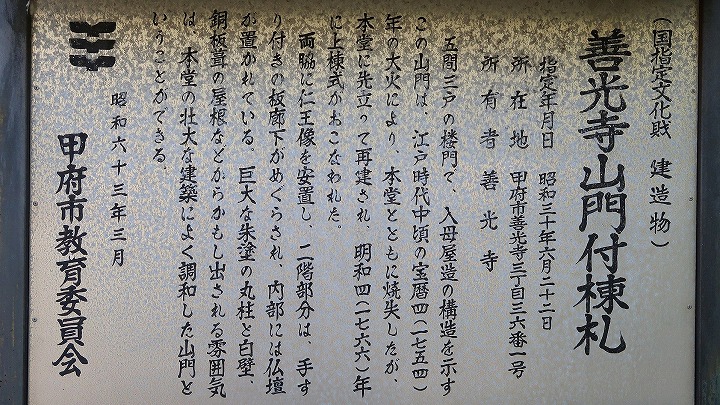 （国指定文化財　建造物）
善光寺山門付棟札
指定年月日　昭和三十年六月二十二日
所在地　甲府市善光寺三丁目三六番一号
所有者　善光寺
五間三戸の楼門で、入母屋造の構造を示す
この山門は、江戸時代中頃の宝暦四（一七五四）
年の大火により、本堂とともに焼失したが、
本堂に先立って再建され、明和四（一七六六）年
に上棟式がおこなわれた。
両脇に仁王像を安置し、二階部分は、手す
り付きの板廊下がめぐらされ、内部には仏壇
が置かれている。巨大な朱塗の丸柱と白壁、
銅板葺の屋根などからかもし出される雰囲気
は、本堂の壮大な建築によく調和した山門と
いうことができる。
昭和六十三年三月
甲府市教育委員会